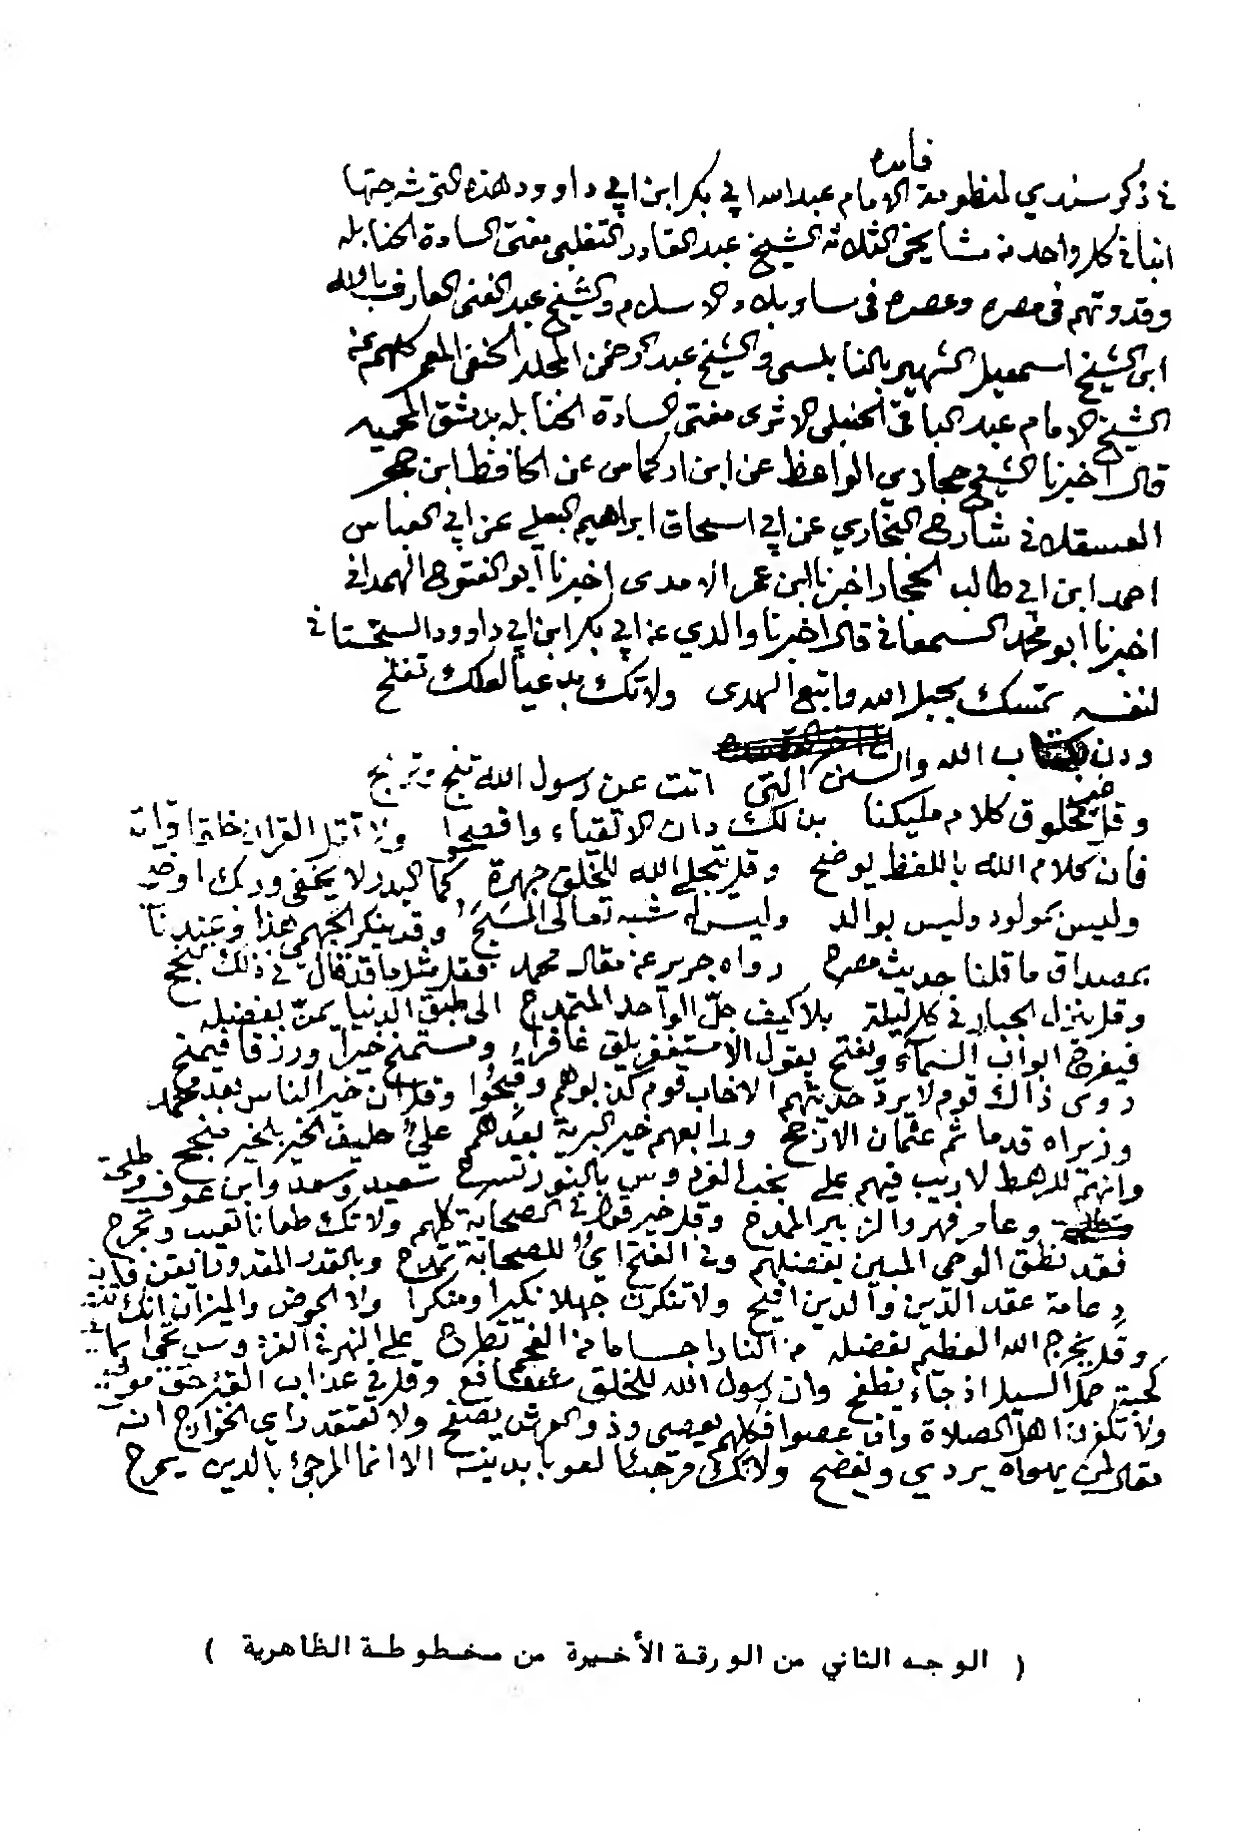 فايده
في ذكر سندي لمنظومة الامام عبدالله ابي بكر ابن ابي داوود هذه التي شرحتها
انبأني كل واحد من مشايخي الثلاثه الشيخ عبد القادر التغلبي مفتي السادة الحنابله
وقدوتهم في مصره وعصره في ساير بلاد الاسلام والشيخ عبد الغني العارف بالله
ابن الشيخ اسمعيل الشهير بالنابلسي والشيخ عبد الرحمن المجلد الحنفي المعمر كلهم عن
الشيخ الامام عبد الباقي الحنبلي الاثري مفتي السادة الحنابله بدمشق المحميه
قال اخبرنا الشيخ حجازي الواعظ عن ابن اركماس عن الحافظ ابن حجر
العسقلاني شارح البخاري عن ابي اسحاق ابراهيم البعلي عن ابي العباس
احمد ابن ابي طالب الحجار اخبرنا ابن عمر الامدى اخبرنا أبو الفتوح الهمداني
اخبرنا أبو محمد السمعاني قال اخبرنا والدي عن ابي بكر ابن ابي داوود السجستاني
لنفسه تمسك بحبل الله واتبع الهدى ولا تك بدعياً لعلك تفلح
ودن بكتاب الله والسنن التي اتت عن رسول الله تنج وتربح
وقل غير مخلوق كلام مليكنا بذلك دان الاتقياء وافصحوا ولا تقل القران خلقا قراته
فان كلام الله باللفظ يوضح وقل يتجلى الله للخلق جهرة كما البدر لا يخفى وربك اوضح
وليس بمولود وليس بوالد وليس له شبه تعالى المسبح وقد ينكر الجهمي هذا وعندنا
بمصداق ما قلنا حديث مصرح رواه جرير عن مقال محمد فقل مثل ما قد قال في ذلك تنجح
وقل ينزل الجبار في كل ليلة بلا كيف جلّ الواحد المتمدح الى طبق الدنيا يمنّ بفضله
فيفرج ابواب السمآء وتفتح يقول الا مستغفر يلق غافرا ومستمنح خيرا ورزقا فيمنح
روى ذاك قوم لا يردّ حديثهم الا خاب قوم كذبوهم وقبحوا وقل ان خير الناس بعد محمد
وزيراه قدما ثم عثمان الارجح ورابعهم خير البرية بعدهم عليٌ حليف الخير بالخير منجح
وانهم للرهط لا ريب فيهم على نجب الفردوس بالنور تسرح سعيد وسعد وابن عوف وطلحة
وعامر فهر والزبير الممدح وقل خير قول في الصحابة كلهم ولا تك طعانا تعيب وتجرح
فقد نطق الوحي المبين بفضلهم وفي الفتح ايٌ للصحابة تمدح وبالقدر المقدور ايقن فانه
دعامة عقد الدّين والدين افيح ولا تنكرن جهلا نكيرا ومنكرا ولا الحوض والميزان انك تنصح
وقل يخرج الله العظيم بفضله من النار اجساما من الفحم تطرح على النهر في الفردوس تحيى بمائه
كحبة حمل السيل اذ جاء يطفح وان رسول الله للخلق شافع وقل في عذاب القبر حق موضح
ولا تكفرن اهل الصلاة وان عصوا فكلهم يعصي وذو العرش يصفح ولا تعتقد راي الخوارج انه
مقال لمن يهواه يردي ويفضح ولا تك مرجئا لعوبا بدينه الا انما المرجئ بالدين يمزح
( الوجه الثاني من الورقة الأخيرة من مخطوطة الظاهرية )